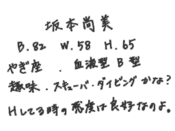 坂本尚美
B.82 W.58 H.65
やぎ座．血液型B型
趣味．スキューバ・ダイビングかな？
Hしてる時の感度は良好なのよ。